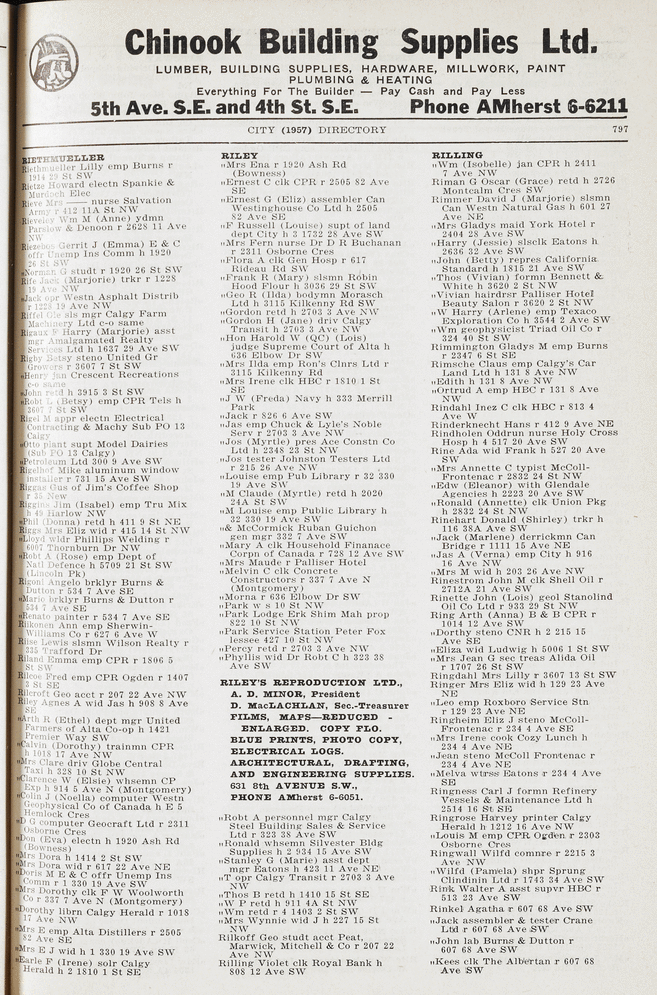 Chinook Building Supplies Ltd.
LUMBER, BUILDING SUPPLIES, HARDWARE, MILLWORK, PAINT
PLUMBING & HEATING
Everything For The Builder — Pay Cash and Pay Less
5th Ave. S.E. and 4th St. S.E. Phone AMherst 6-6211
CITY (1957) DIRECTORY 797
RIETHMUELLER
Riethmueller Lilly emp Burns r
1914 29 St SW
Rietze Howard electn Spankie &
Murdoch Elec
Rieve Mrs —— nurse Salvation
Army r 412 11A St NW
Rieveley Wm M (Anne) ydmn
Parslow & Denoon r 2628 11 Ave
NW
Riezebos Gerrit J (Emma) E & C
offr Unemp Ins Comm h 1920
26 St SW
„Norman G studt r 1920 26 St SW
Rife Jack (Marjorie) trkr r 1228
19 Ave NW
„Jack opr Westn Asphalt Distrib
r 1228 19 Ave NW
Riffel Ole sls mgr Calgy Farm
Machinery Ltd c-o same
Rigaux F Harry (Marjorie) asst
mgr Amalgamated Realty
Services Ltd h 1637 29 Ave SW
Rigby Betsy steno United Gr
Growers r 3607 7 St SW
„Henry jan Crescent Recreations
c-o same
„John retd h 3915 3 St SW
„Robt L (Betsy) emp CPR Tels h
3607 7 St SW
Rigel M appr electn Electrical
Contracting & Machy Sub PO 13
Calgy
„Otto plant supt Model Dairies
(Sub PO 13 Calgy)
„Petroleum Ltd 300 9 Ave SW
Rigelhof Mike aluminum window
installer r 731 15 Ave SW
Riggas Gus of Jim's Coffee Shop
r 35 New
Riggins Jim (Isabel) emp Tru Mix
h 49 Harlow NW
„Phil (Donna) retd h 411 9 St NE
Riggs Mrs Eliz wid r 415 14 St NW
„Lloyd wldr Phillips Welding r
6007 Thornburn Dr NW
„Robt A (Rose) emp Dept of
Natl Defence h 5709 21 St SW
(Lincoln Pk)
Rigoni Angelo brklyr Burns &
Dutton r 534 7 Ave SE
„Mario brklyr Burns & Dutton r
534 7 Ave SE
„Renato painter r 534 7 Ave SE
Riikonen Ann emp Sherwin-
Williams Co r 627 6 Ave W
Riise Lewis slsmn Wilson Realty r
335 Trafford Dr
Riland Emma emp CPR r 1806 5
St SW
Rilcoe Fred emp CPR Ogden r 1407
3 St SE
Rilcroft Geo acct r 207 22 Ave NW
Riley Agnes A wid Jas h 908 8 Ave
SE
„Arth R (Ethel) dept mgr United
Farmers of Alta Co-op h 1421
Premier Way SW
„Calvin (Dorothy) trainmn CPR
h 1018 17 Ave NW
„Mrs Clare driv Globe Central
Taxi h 328 10 St NW
„Clarence W (Elsie) whsemn CP
Exp h 914 5 Ave N (Montgomery)
„Colin J (Noella) computer Westn
Geophysical Co of Canada h E 5
Hemlock Cres
„D G computer Geocraft Ltd r 2311
Osborne Cres
„Don (Eva) electn h 1920 Ash Rd
(Bowness)
„Mrs Dora h 1414 2 St SW
„Mrs Dora wid r 617 22 Ave NE
„Doris M E & C offr Unemp Ins
Comm r 1 330 19 Ave SW
„Mrs Dorothy clk F W Woolworth
Co r 337 7 Ave N (Montgomery)
„Dorothy librn Calgy Herald r 1018
17 Ave NW
„Mrs E emp Alta Distillers r 2505
82 Ave SE
„Mrs E J wid h 1 330 19 Ave SW
„Earle F (Irene) solr Calgy
Herald h 2 1810 1 St SE
RILEY
„Mrs Ena r 1920 Ash Rd
(Bowness)
„Ernest C clk CPR r 2505 82 Ave
SE
„Ernest G (Eliz) assembler Can
Westinghouse Co Ltd h 2505
82 Ave SE
„F Russell (Louise) supt of land
dept City h 3 1732 28 Ave SW
„Mrs Fern nurse Dr D R Buchanan
r 2311 Osborne Cres
„Flora A clk Gen Hosp r 617
Rideau Rd SW
„Frank R (Mary) slsmn Robin
Hood Flour h 3036 29 St SW
„Geo R (Ilda) bodymn Morasch
Ltd h 3115 Kilkenny Rd SW
„Gordon retd h 2703 3 Ave NW
„Gordon H (Jane) driv Calgy
Transit h 2703 3 Ave NW
„Hon Harold W (QC) (Lois)
judge Supreme Court of Alta h
636 Elbow Dr SW
„Mrs Ilda emp Ron's Clnrs Ltd r
3115 Kilkenny Rd
„Mrs Irene clk HBC r 1810 1 St
SE
„J W (Freda) Navy h 333 Merrill
Park
„Jack r 826 6 Ave SW
„Jas emp Chuck & Lyle's Noble
Serv r 2703 3 Ave NW
„Jos (Myrtle) pres Ace Constn Co
Ltd h 2348 23 St NW
„Jos tester Johnston Testers Ltd
r 215 26 Ave NW
„Louise emp Pub Library r 32 330
19 Ave SW
„M Claude (Myrtle) retd h 2020
24A St SW
„M Louise emp Public Library h
32 330 19 Ave SW
„& McCormick Ruban Guichon
gen mgr 332 7 Ave SW
„Mary A clk Household Finanace
Corpn of Canada r 728 12 Ave SW
„Mrs Maude r Palliser Hotel
„Melvin C clk Concrete
Constructors r 337 7 Ave N
(Montgomery)
„Morna r 636 Elbow Dr SW
„Park w s 10 St NW
„Park Lodge Erk Shim Mah prop
822 10 St NW
„Park Service Station Peter Fox
lessee 427 10 St NW
„Percy retd r 2703 3 Ave NW
„Phyllis wid Dr Robt C h 323 38
Ave SW
RILEY'S REPRODUCTION LTD.,
A. D. MINOR, President
D. MacLACHLAN, Sec.-Treasurer
FILMS, MAPS—REDUCED -
ENLARGED. COPY FLO.
BLUE PRINTS, PHOTO COPY,
ELECTRICAL LOGS.
ARCHITECTURAL, DRAFTING,
AND ENGINEERING SUPPLIES.
631 8th AVENUE S.W.,
PHONE AMherst 6-6051.
„Robt A personnel mgr Calgy
Steel Building Sales & Service
Ltd r 323 38 Ave SW
„Ronald whsemn Silvester Bldg
Supplies h 2 934 15 Ave SW
„Stanley G (Marie) asst dept
mgr Eatons h 423 11 Ave NE
„T opr Calgy Transit r 2703 3 Ave
NW
„Thos B retd h 1410 15 St SE
„W P retd h 911 4A St NW
„Wm retd r 4 1403 2 St SW
„Mrs Wynnie wid J h 227 15 St
NW
Rilkoff Geo studt acct Peat,
Marwick, Mitchell & Co r 207 22
Ave NW
Rilling Violet clk Royal Bank h
808 12 Ave SW
RILLING
„Wm (Isobelle) jan CPR h 2411
7 Ave NW
Riman G Oscar (Grace) retd h 2726
Montcalm Cres SW
Rimmer David J (Marjorie) slsmn
Can Westn Natural Gas h 601 27
Ave NE
„Mrs Gladys maid York Hotel r
2404 28 Ave SW
„Harry (Jessie) slsclk Eatons h
2636 32 Ave SW
„John (Betty) repres California
Standard h 1815 21 Ave SW
„Thos (Vivian) formn Bennett &
White h 3620 2 St NW
„Vivian hairdrsr Palliser Hotel
Beauty Salon r 3620 2 St NW
„W Harry (Arlene) emp Texaco
Exploration Co h 3544 2 Ave SW
„Wm geophysicist Triad Oil Co r
324 40 St SW
Rimmington Gladys M emp Burns
r 2347 6 St SE
Rimsche Claus emp Calgy's Car
Land Ltd h 131 8 Ave NW
„Edith h 131 8 Ave NW
„Ortrud A emp HBC r 131 8 Ave
NW
Rindahl Inez C clk HBC r 813 4
Ave W
Rinderknecht Hans r 412 9 Ave NE
Rindholen Oddrun nurse Holy Cross
Hosp h 4 517 20 Ave SW
Rine Ada wid Frank h 527 20 Ave
SW
„Mrs Annette C typist McColl-
Frontenac r 2832 24 St NW
„Edw (Eleanor) with Glendale
Agencies h 2223 20 Ave SW
„Ronald (Annette) clk Union Pkg
h 2832 24 St NW
Rinehart Donald (Shirley) trkr h
116 38A Ave SW
„Jack (Marlene) derrickmn Can
Bridge r 1111 15 Ave NE
„Jas A (Verna) emp City h 916
16 Ave NW
„Mrs M wid h 203 26 Ave NW
Rinestrom John M clk Shell Oil r
2712A 21 Ave SW
Rinette John (Lois) geol Stanolind
Oil Co Ltd r 933 29 St NW
Ring Arth (Anna) B & B CPR r
1014 12 Ave SW
„Dorthy steno CNR h 2 215 15
Ave SE
„Eliza wid Ludwig h 5006 1 St SW
„Mrs Jean G sec treas Alida Oil
r 1707 26 St SW
Ringdahl Mrs Lily r 3607 13 St SW
Ringer Mrs Eliz wid h 129 23 Ave
NE
„Leo emp Roxboro Service Stn
r 129 23 Ave NE
Ringheim Eliz J steno McColl-
Frontenac r 234 4 Ave SE
„Mrs Irene cook Cozy Lunch h
234 4 Ave NE
„Jean steno McColl Frontenac r
234 4 Ave NE
„Melva wtrss Eatons r 234 4 Ave
SE
Ringness Carl J formn Refinery
Vessels & Maintenance Ltd h
2514 16 St SE
Ringrose Harvey printer Calgy
Herald h 1212 16 Ave NW
„Louis M emp CPR Ogden r 2303
Osborne Cres
Ringwall Wilfd comnre r 2215 3
Ave NW
„Wilfd (Pamela) shpr Sprung
Clindinin Ltd r 1743 34 Ave SW
Rink Walter A asst supvr HBC r
513 23 Ave SW
Rinkel Agatha r 607 68 Ave SW
„Jack assembler & tester Crane
Ltd r 607 68 Ave SW
„John lab Burns & Dutton r
607 68 Ave SW
„Kees clk The Albertan r 607 68
Ave SW